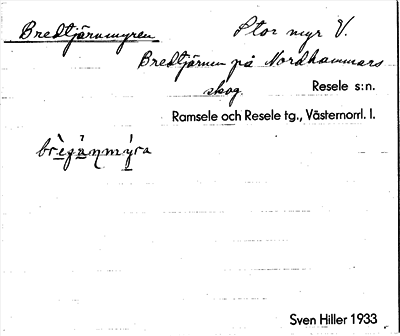 Bredtjärnmyren
Stor myr V.
Bredtjärnen på Nordhammars
skog.
Resele s:n.
Ramsele och Resele tg., Västernorrl. l.
Sven Hiller 1933